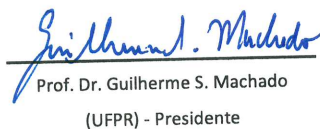 Guilherme S. Machado
Prof. Dr. Guilherme S. Machado
(UFPR) - Presidente